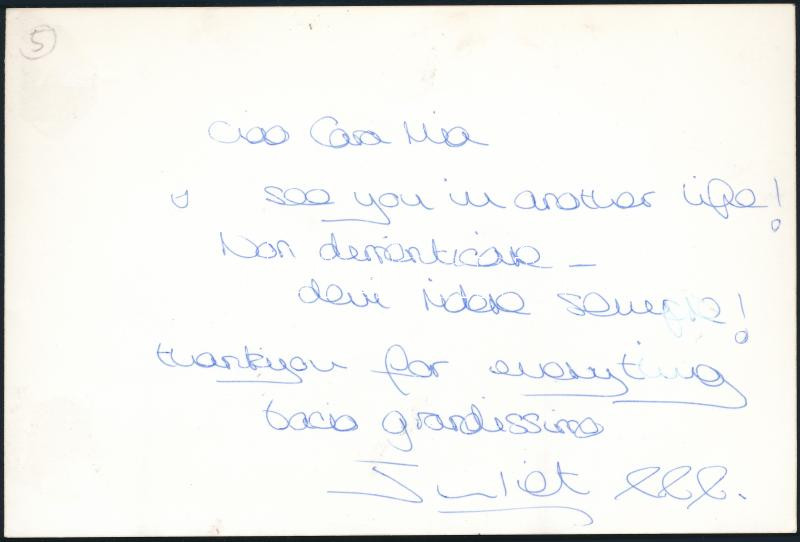 5
Ciao Cara Mia
see you in another life!
Non dementicare -
devi ridere sempre!
thankyou for everything
bacio grandissimo
Juliet